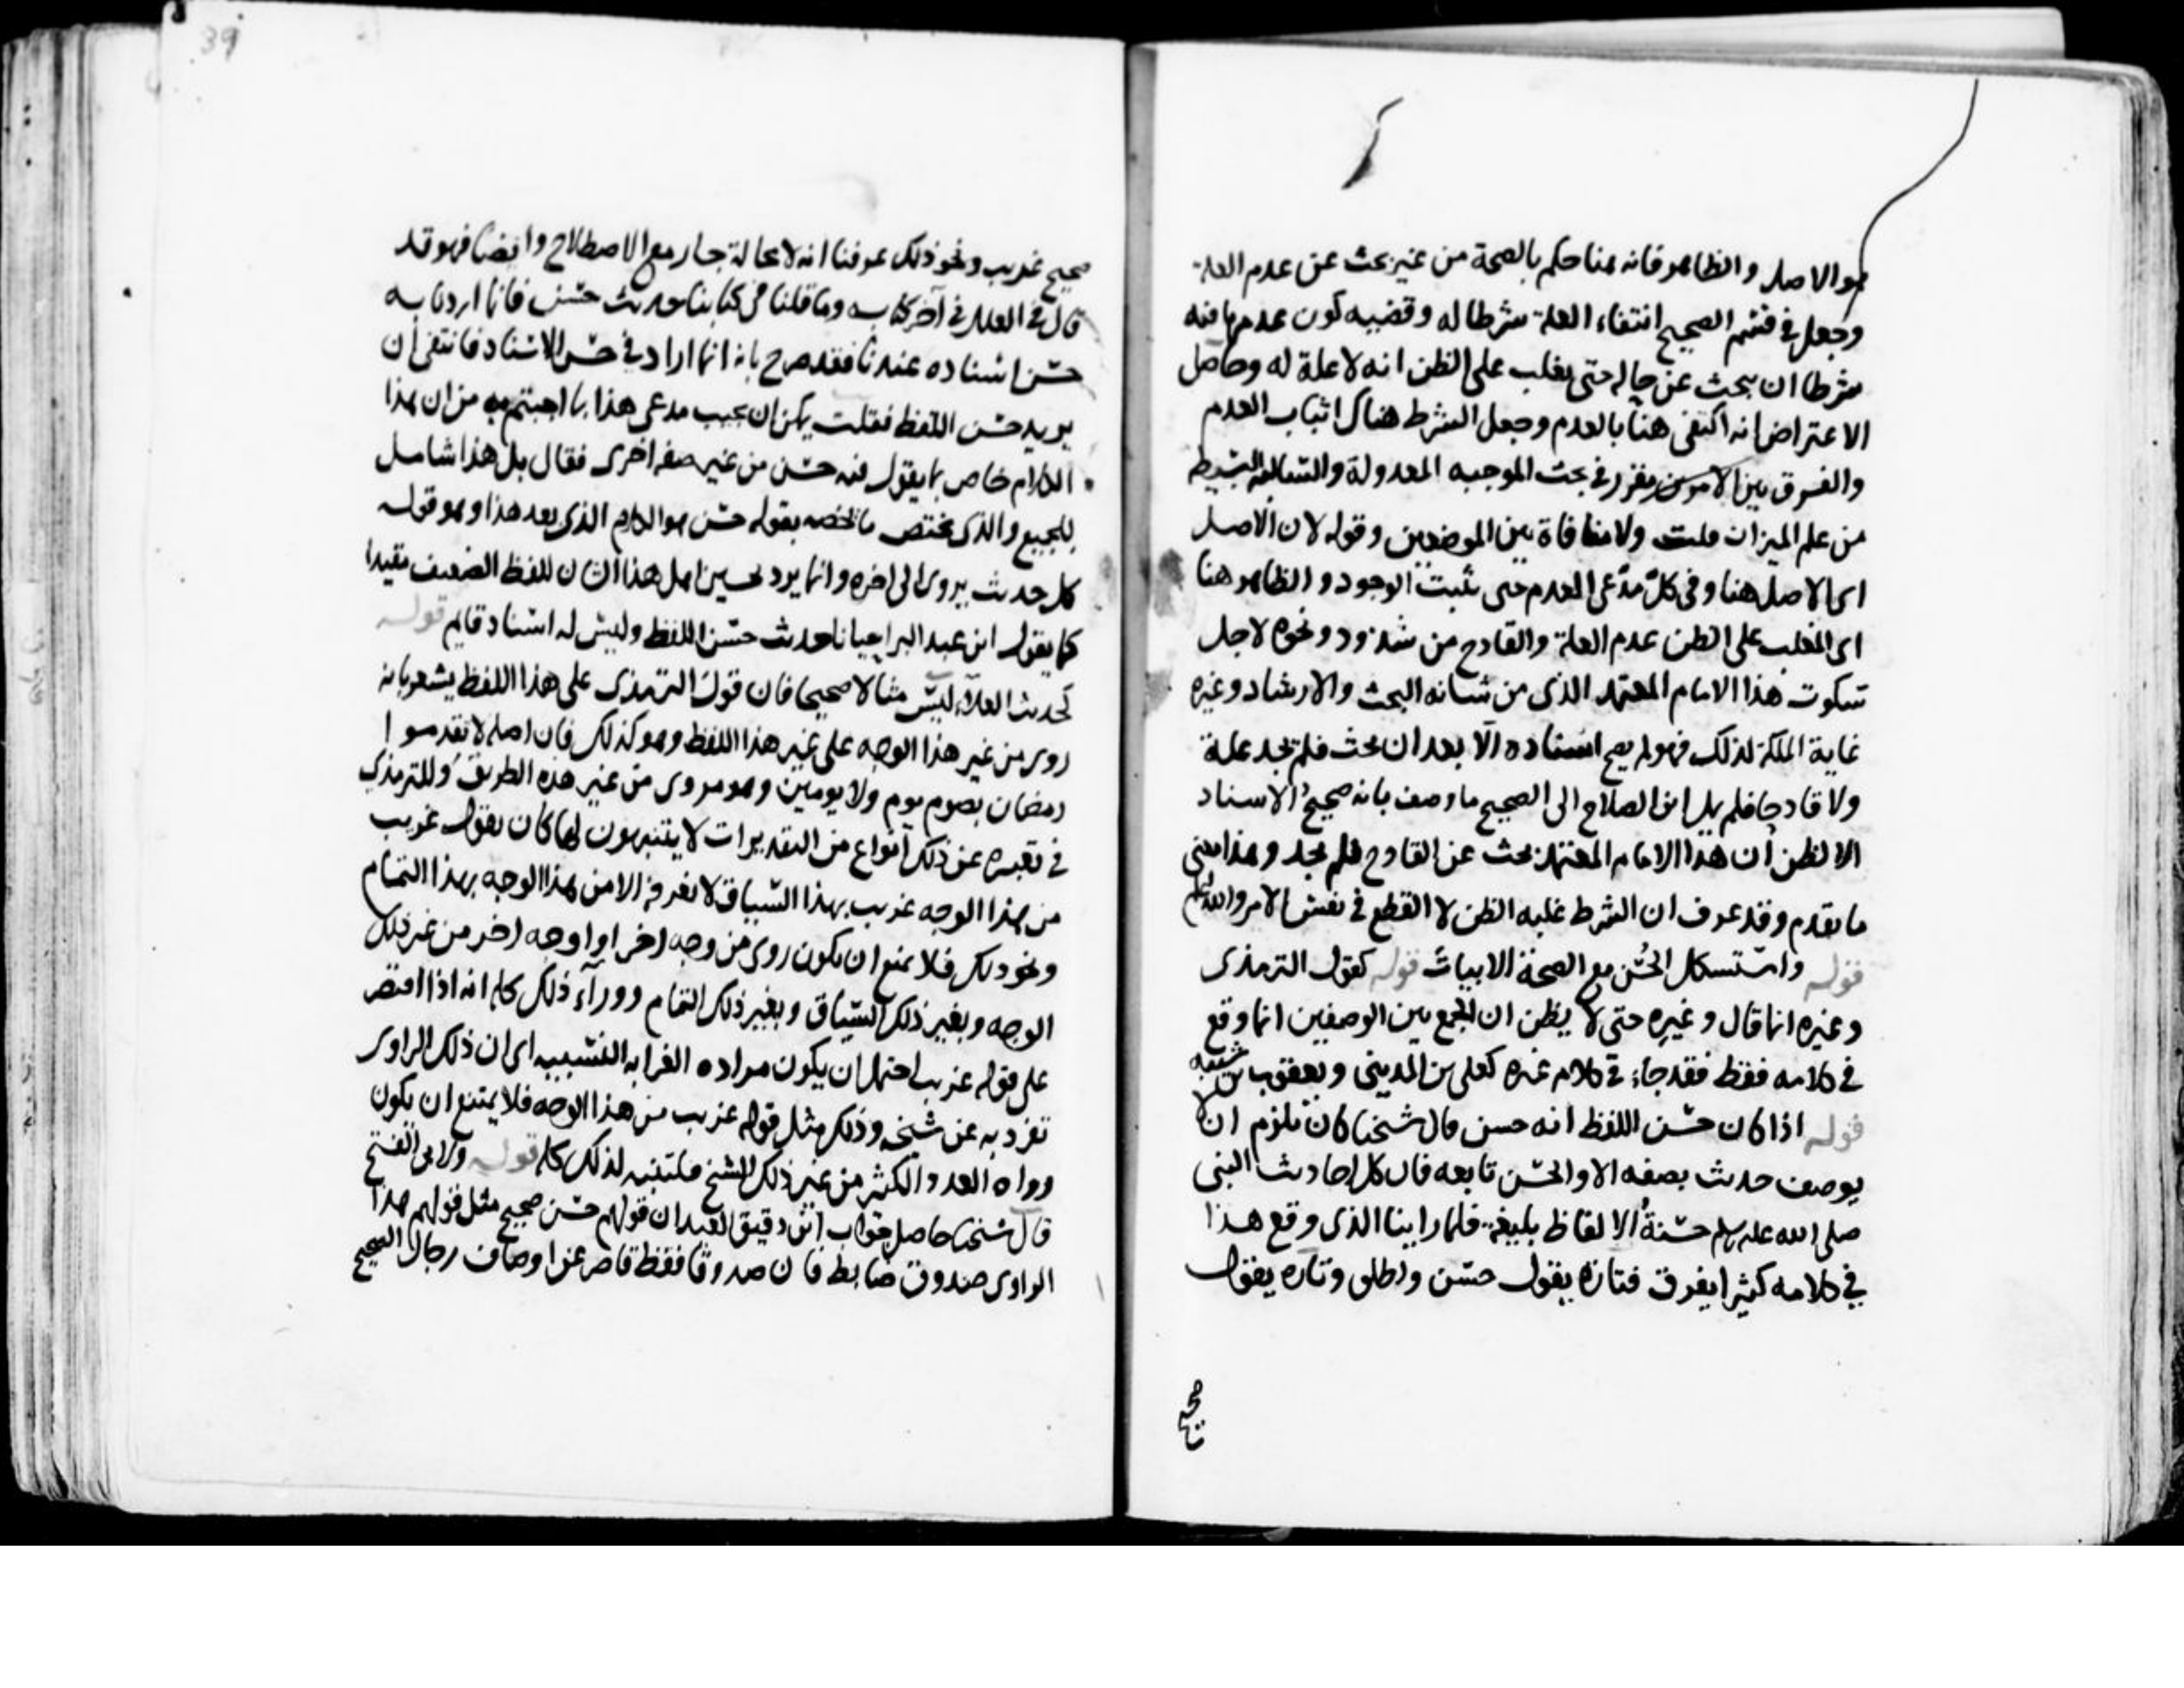 هو الاصل والظاهر فانه هنا حكم بالصحة من غير بحث عن عدم العلة
وجعل في قسم الصحيح انتفاء العلة شرطا له وقضيه كون عدمها فيه
شرطا ان يبحث عن حاله حتى يغلب على الظن انه لا علة له وحاصل
الاعتراض انه اكتفى هنا بالعدم وجعل الشرط هناك اثبات العدم
والفرق بين الامرين مقرر في بحث الموجبه المعدولة والسالبه البسيطه
من علم الميزان قلت ولا منافاة بين الموضعين وقوله لان الاصل
اى الاصل هنا وفي كل مدعى العدم حتى يثبت الوجود والظاهر هنا
اى المغلب على الظن عدم العلة والقادح من شذوذ ونحوه لاجل
سكوت هذا الامام المعتمد الذى من شانه البحث والارشاد وغيره
غاية الملكة لذلك فهو لم يصح اسناده الا بعد ان بحث فلم يجد علة
ولا قادحا فلم يدل ابن الصلاح الى الصحيح ما وصف بانه صحيح الاسناد
الا لظن ان هذا الامام المعتمد بحث عن القادح فلم يجد وهذا
ما تقدم وقد عرف ان الشرط غلبه الظن لا القطع في نفس الامر والله اعلم
قوله واستشكل الحسن مع الصحة الابيات قوله كقول الترمذى
وغيره انما قال وغيره حتى لا يظن ان الجمع بين الوصفين انما وقع
في كلامه فقط فقد جاء في كلام غيره كعلى بن المدينى ويعقوب بن شيبه
قوله اذا كان حسن اللفظ انه حسن قال شيخنا كان يلزم ان لا
يوصف حديث بصفه الا والحسن تابعه فان كل احاديث النبى
صلى الله عليه وسلم حسنة الالفاظ بليغة فلما راينا الذى وقع هذا
في كلامه كثيرا يفرق فتارة يقول حسن ويطلق وتارة يقول
صحيح
39
صحيح غريب ونحو ذلك عرفنا انه لا محالة جار مع الاصطلاح وايضا فهو قد
قال في العلل في آخر كتابه وما قلنا في كتابنا حديث حسن فانما اردنا به
حسن اسناده عندنا فقد صرح بانه انما اراد في حسن الاسناد فانتفى ان
يريد حسن اللفظ فقلت يمكن ان يجيب مدعى هذا بما اجبتم به من ان هذا
الكلام خاص بما يقول فيه حسن من غير صفه اخرى فقال بل هذا شامل
للجميع والذى يختص ما يخصه بقوله حسن هو الكلام الذى بعد هذا وهو قوله
كل حديث يروى الى اخره وانما يرد تحسين اهل هذا الشان للفظ الضعيف مقيدا
كما يقول ابن عبد البر احيانا حديث حسن اللفظ وليس له اسناد قايم قوله
كحديث العلاء ليس مثالا صحيحا فان قول الترمذى على هذا اللفظ يشعر بانه
روى من غير هذا الوجه على غير هذا اللفظ وهو كذلك فان اصله لا تقدموا
رمضان بصوم يوم ولا يومين وهو مروى من غير هذه الطريق وللترمذى
في تعبيره عن ذلك انواع من التقديرات لا يتنبهون لها كان يقول غريب
من هذا الوجه غريب بهذا السياق لا نعرفه الا من هذا الوجه بهذا التمام
ونحو ذلك فلا يمنع ان يكون روى من وجه اخر او اوجه اخر من غير ذلك
الوجه وبغير ذلك السياق وبغير ذلك التمام ووراء ذلك كله انه اذا اقتصر
على قوله غريب احتمل ان يكون مراده الغرابه النسبيه اى ان ذلك الراوى
تفرد به عن شيخه وذلك مثل قوله غريب من هذا الوجه فلا يمتنع ان يكون
رواه العدد الكثير من غير ذلك الشيخ فليتنبه لذلك كله قوله ولابى الفتح
قال شيخنا حاصل جواب ابن دقيق العيد ان قولهم حسن صحيح مثل قولهم هذا
الراوى صدوق ضابط فان صدوقا فقط قاصر عن اوصاف رجال الصحيح